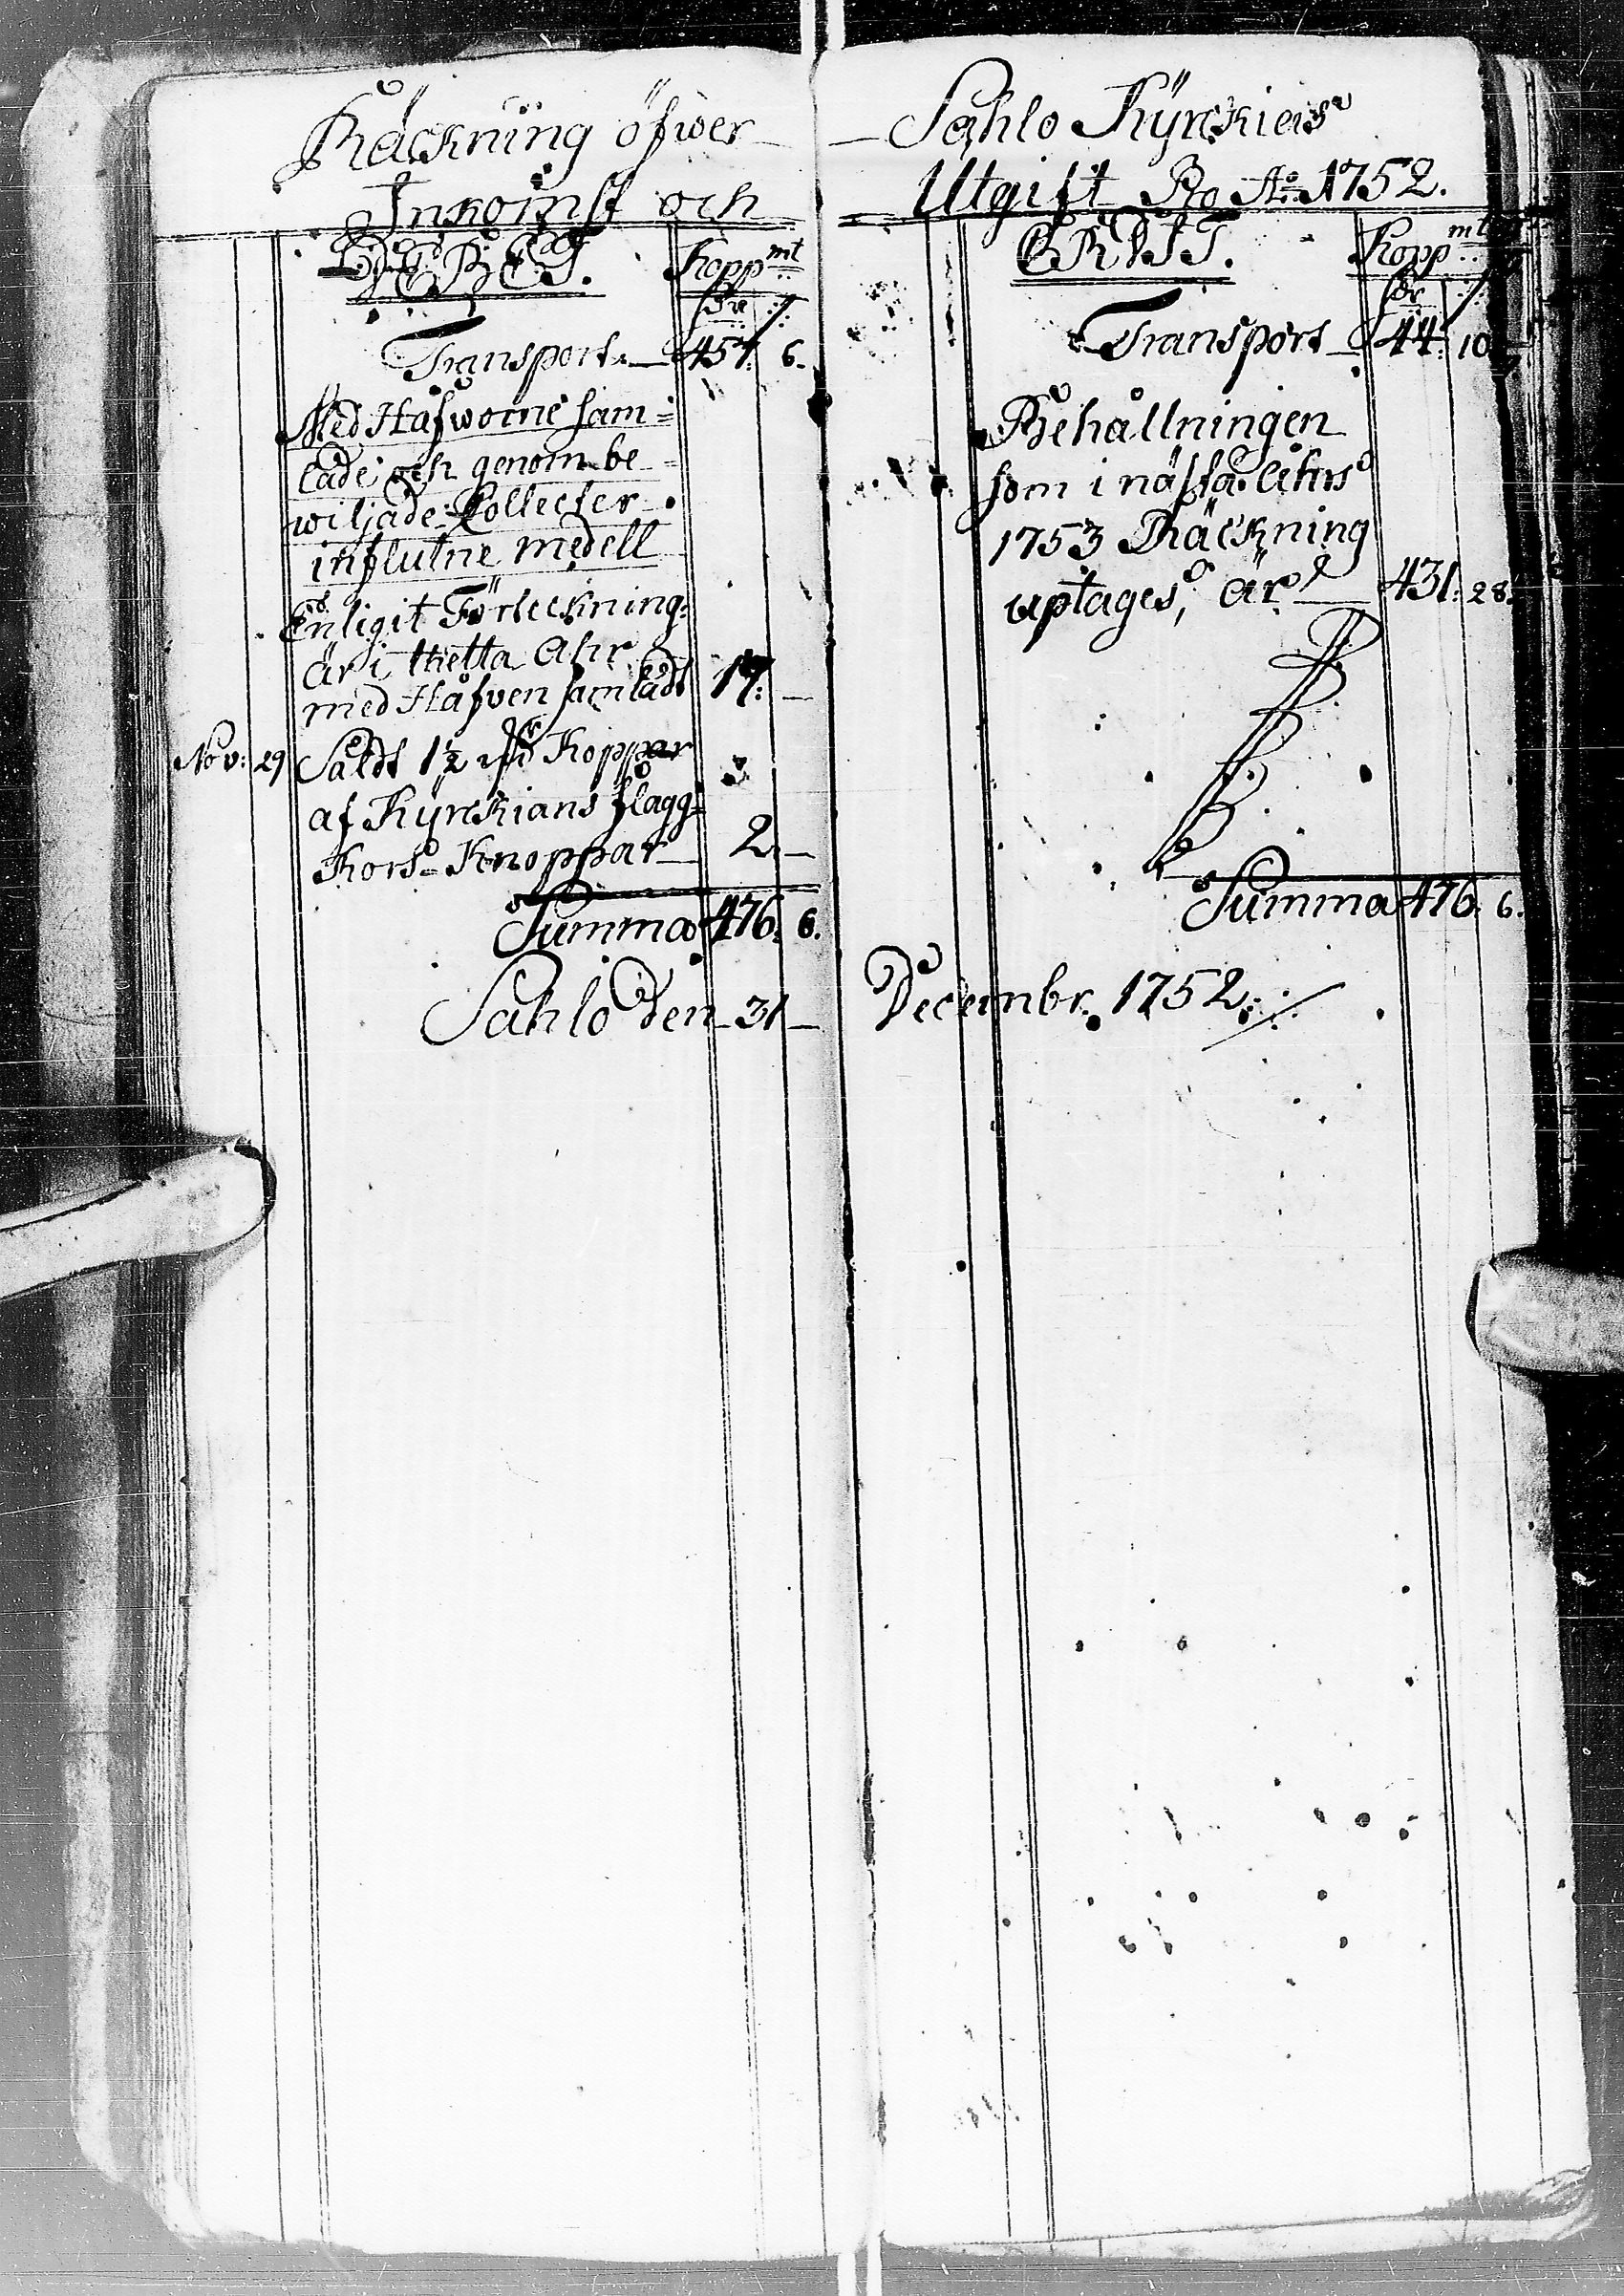 Räckning öfwer
Inkomst och
DEBET. Kopp mt
Transport 457: 6.
Med Håfworne sam=
lade och genom be=
wiljade Collecter
influtne medell
Enligit Förteckning:
är i thetta Åhr
med Håfven samladt 17: —
Nov: 29 Såldt 1½ Koppar
af Kyrckians flagg=
Kors-Knoppar 2. —
Summa 476. 6.
Sahlo den 31
Sahlo Kyrckias
Utgift Pro Ao 1752.
CREDIT. Kopp mt
Transport 44: 10
Behållningen
som i nästa Åhrs
1753 Räckning
uptages, är 431: 28.
Summa 476. 6.
Decembr. 1752.